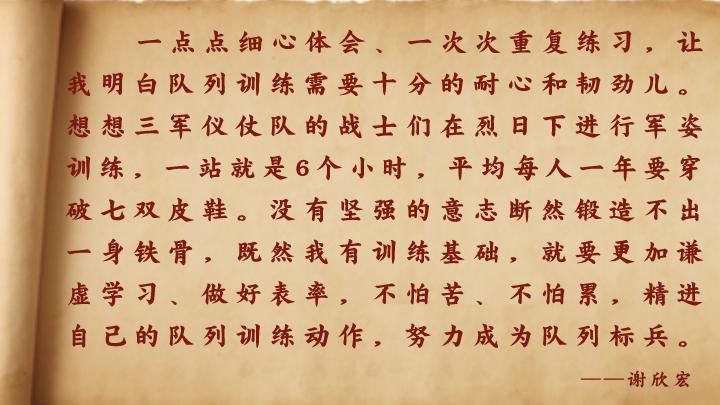 一点点细心体会、一次次重复练习，让
我明白队列训练需要十分的耐心和韧劲儿。
想想三军仪仗队的战士们在烈日下进行军姿
训练，一站就是6个小时，平均每人一年要穿
破七双皮鞋。没有坚强的意志断然锻造不出
一身铁骨，既然我有训练基础，就要更加谦
虚学习、做好表率，不怕苦、不怕累，精进
自己的队列训练动作，努力成为队列标兵。
——谢欣宏